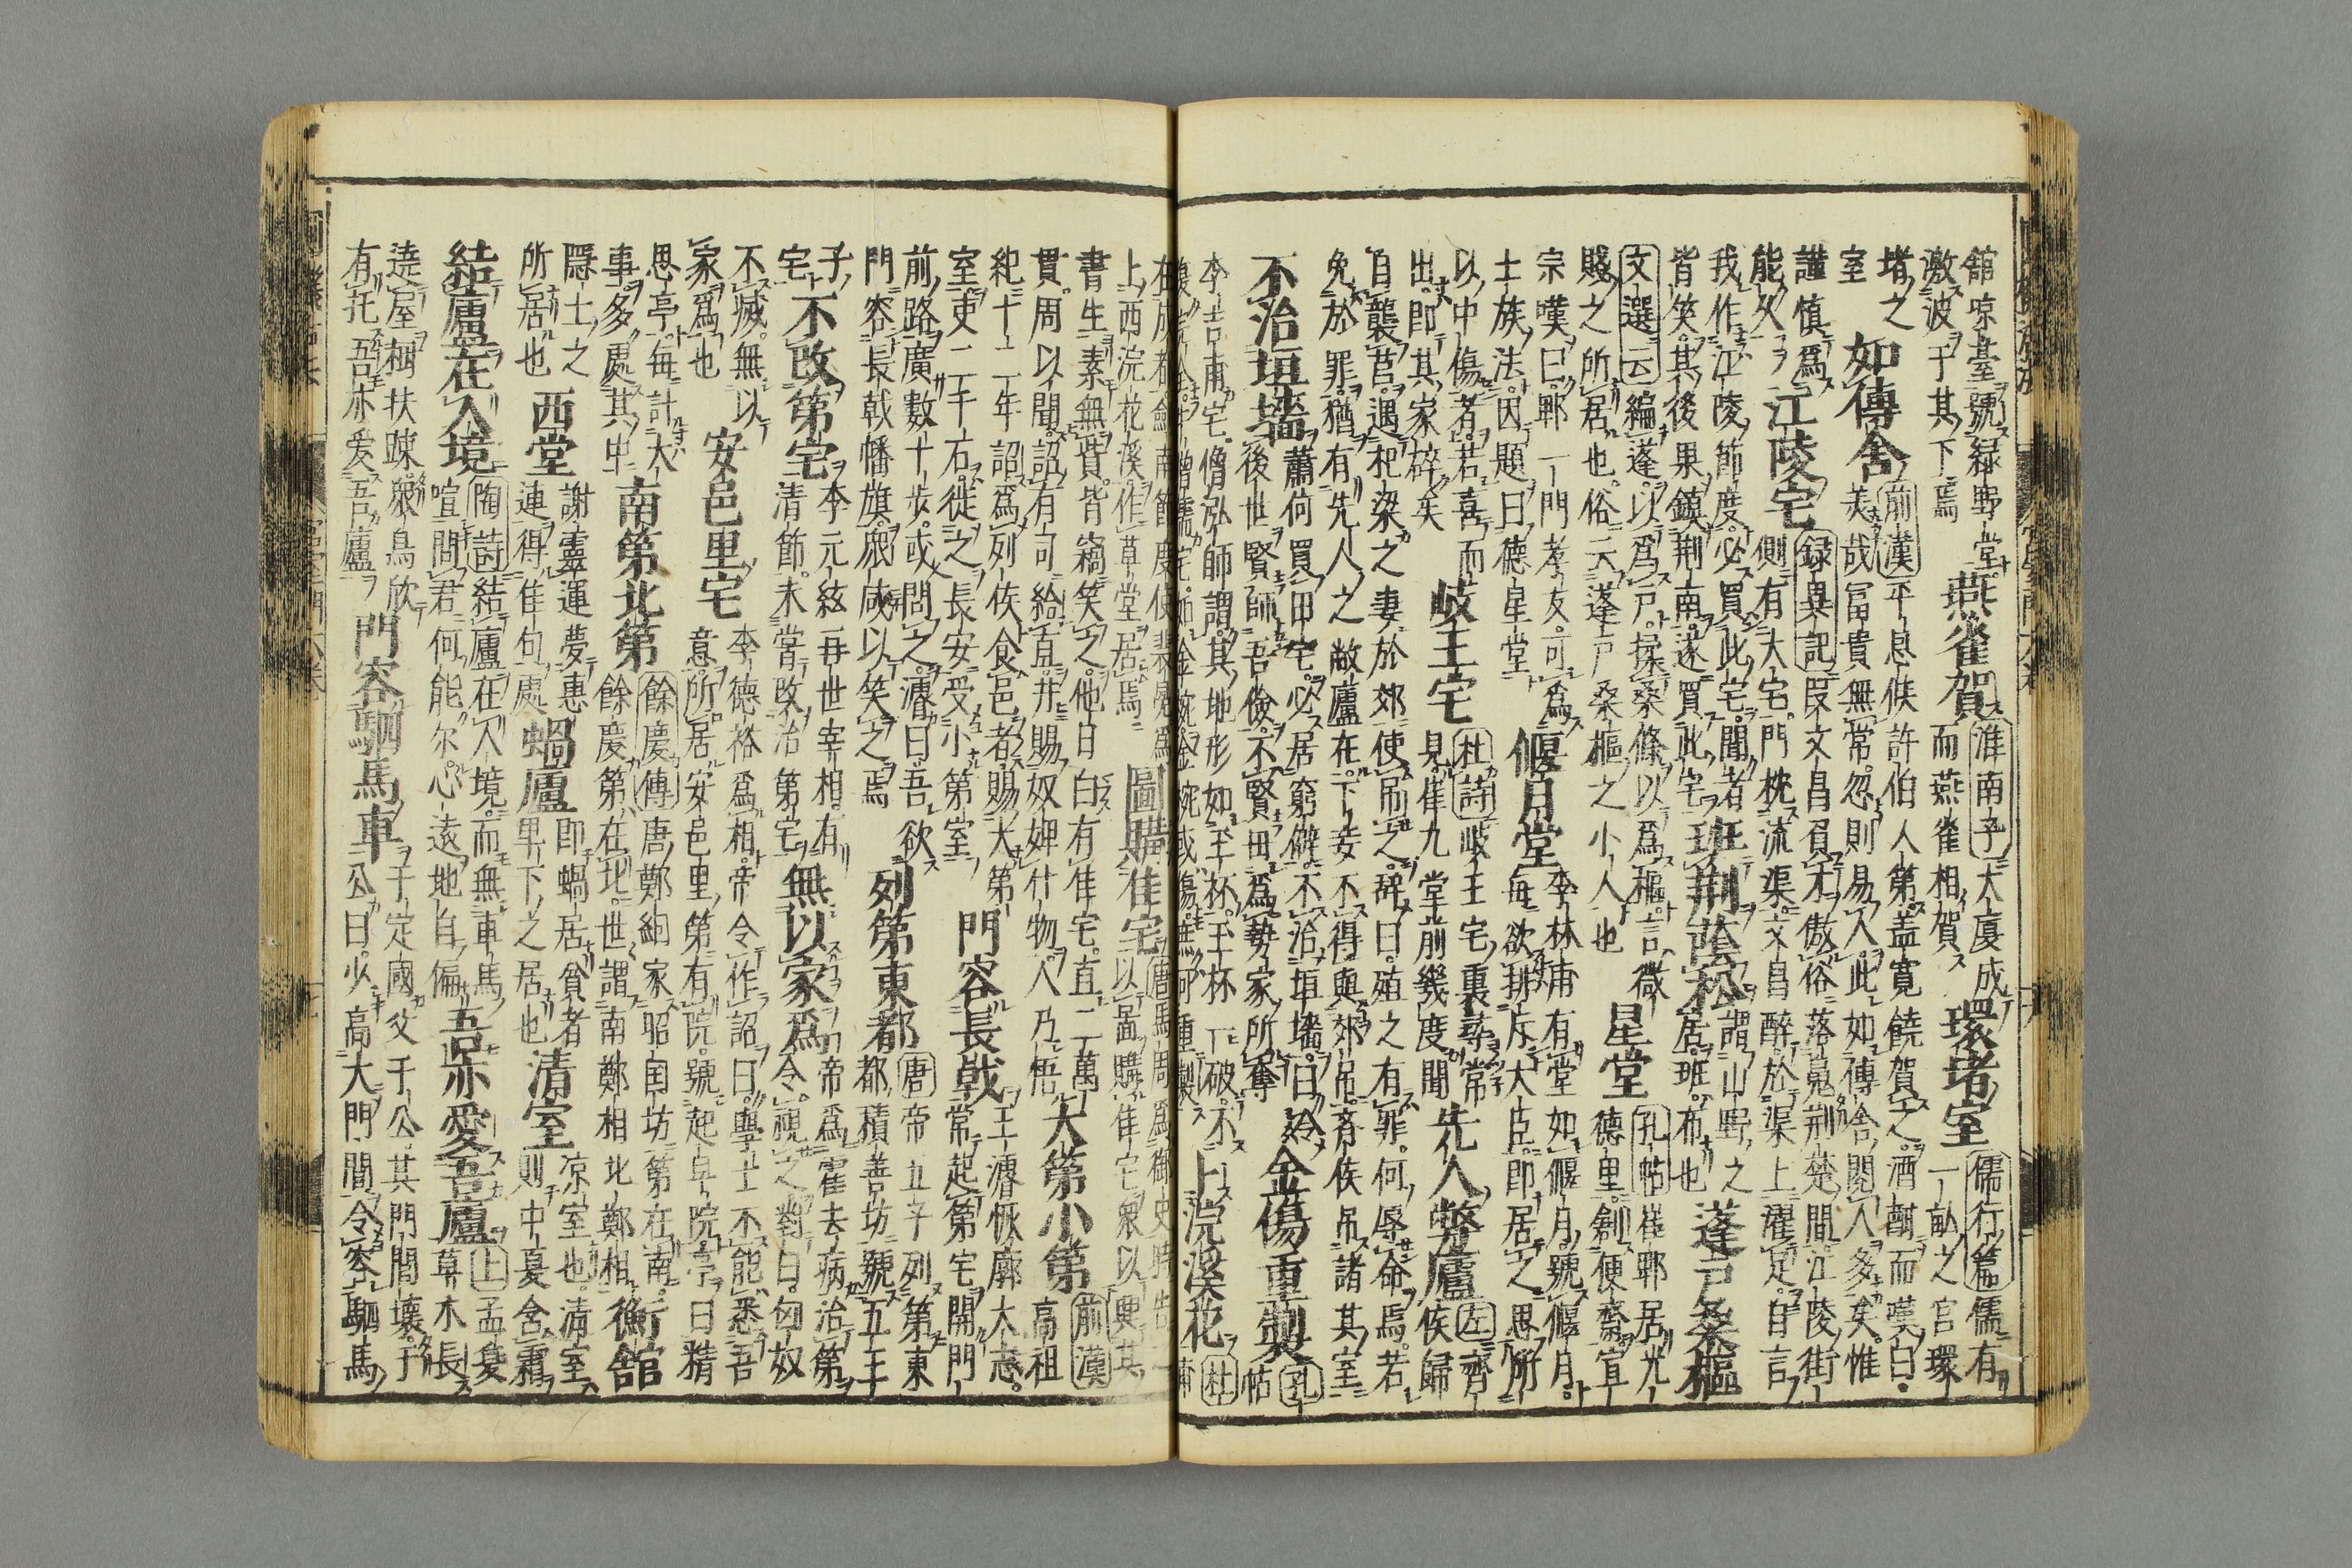 舘凉臺號緑野堂
激波于其下焉
燕雀賀
淮南子大廈成
而燕雀相賀
環堵室
儒行篇儒有
一畝之宮環
堵之
室
如傳舍
前漢平恩侯許伯人第蓋寛饒賀之酒酣而嘆曰
美哉冨貴無常忽則易人此如傳舍閲人多矣惟
謹慎爲
能久
江陵宅
録異記段文昌負才傲俗落魄荆楚間江陵街
側有大宅門枕流渠文昌醉於渠上濯足自言
我作江陵節度必買此宅聞者
皆笑其後果鎮荆南遂買此宅
班荆蔭松
謂山野之
居班布也
蓬戸桑樞
文選云編蓬以爲戸揉桑條以爲樞言微
賤之所居也俗云蓬戸桑樞之小人也
星堂
孔帖崔郾居光
德里創便齋宣
宗嘆曰郾一門孝友可爲
士族法因題曰德星堂
偃月堂
李林甫有堂如偃月號偃月
毎欲排斥大臣即居之思所
以中傷者若喜而
出即其家碎矣
岐王宅
杜詩岐王宅裏尋常
見崔九堂前幾度聞
先人弊廬
左齊
侯歸
自襲莒遇杞梁之妻於郊使吊之辭曰殖之有罪何辱命焉若
免於罪猶有先人之敝廬在下妾不得與郊吊齊侯吊諸其室
不治垣墻
蕭何買田宅必居窮僻不治垣墻曰令
後世賢師吾儉不賢毋爲勢家所奪
金傷重製
孔
帖
李吉甫宅僧泓師謂其地形如玉杯玉杯一破不
復完金牛僧孺宅如金椀金椀或傷庶可重製
上浣溪花
杜
甫
在成都劔南節度使裴冕爲
上西浣花溪作草堂居焉
圖購佳宅
唐馬周爲御史時
以啚購佳宅衆以興其
書生素無貲皆竊笑之他日白有佳宅直二萬
貫周以聞詔有司給直并賜奴婢什物人乃悟
大第小第
前漢
高祖
紀十二年詔爲列侯食邑者賜大第
室吏二千石徙之長安受小第室
門容長戟
王濬恢廓大志
常起第宅開門
前路廣數十歩或問之濬曰吾欲
門容長戟幡旗衆咸以笑之焉
列第東都
唐帝五子列第東
都積善坊號五王
子
宅
不改第宅
李元紘再世宰相有
清節未嘗改治第宅
無以家爲
帝爲霍去病治第
令視之對曰匈奴
不滅無以
家爲也
安邑里宅
李德裕爲相帝令作詔曰學士不能悉吾
意所居安邑里第有院號起草院亭曰精
思亭毎計大
事多處其中
南第北第
餘慶傳唐鄭絪家昭国坊第在南
餘慶第在北世謂南鄭相北鄭相
衡舘
隱士之
所居也
西堂
謝靈運夢惠
連得佳句處
蝸廬
即蝸居貧者
卑下之居也
清室
凉室也清室
則中夏含霜
結廬在人境
陶詩結廬在人境而無車馬
喧問君何能尓心遠地自偏
吾亦愛吾廬
上孟夏
草木長
遶屋樹扶踈衆鳥欣
有托吾亦爱吾廬
門容駟馬車
于定國父于公其門閭壞于
公曰少高大門閭令容駟馬